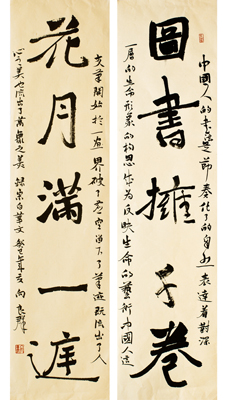 中國人的書法是節奏化了的自然表達着對深
圖書擁千卷
一層的生命形象的构思成为反映生命的藝術中國人這
支筆開始於一畫界破了虛空留下了筆迹既流出了人
花月滿一庭
心之美也流出了萬象之美 錄宗白華文 癸巳年